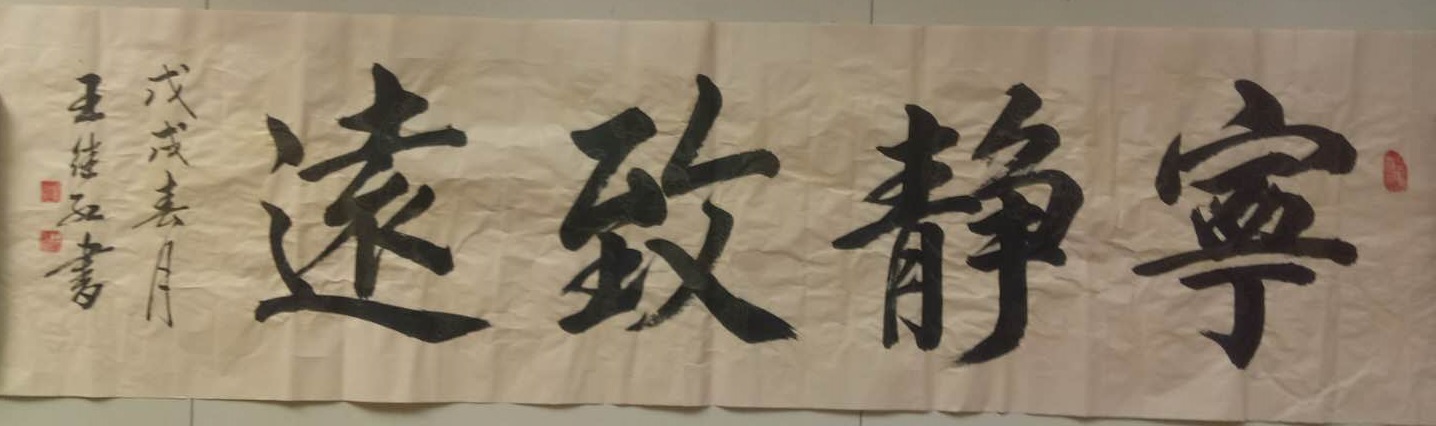 寧靜致遠
戊戌春月
王继红書